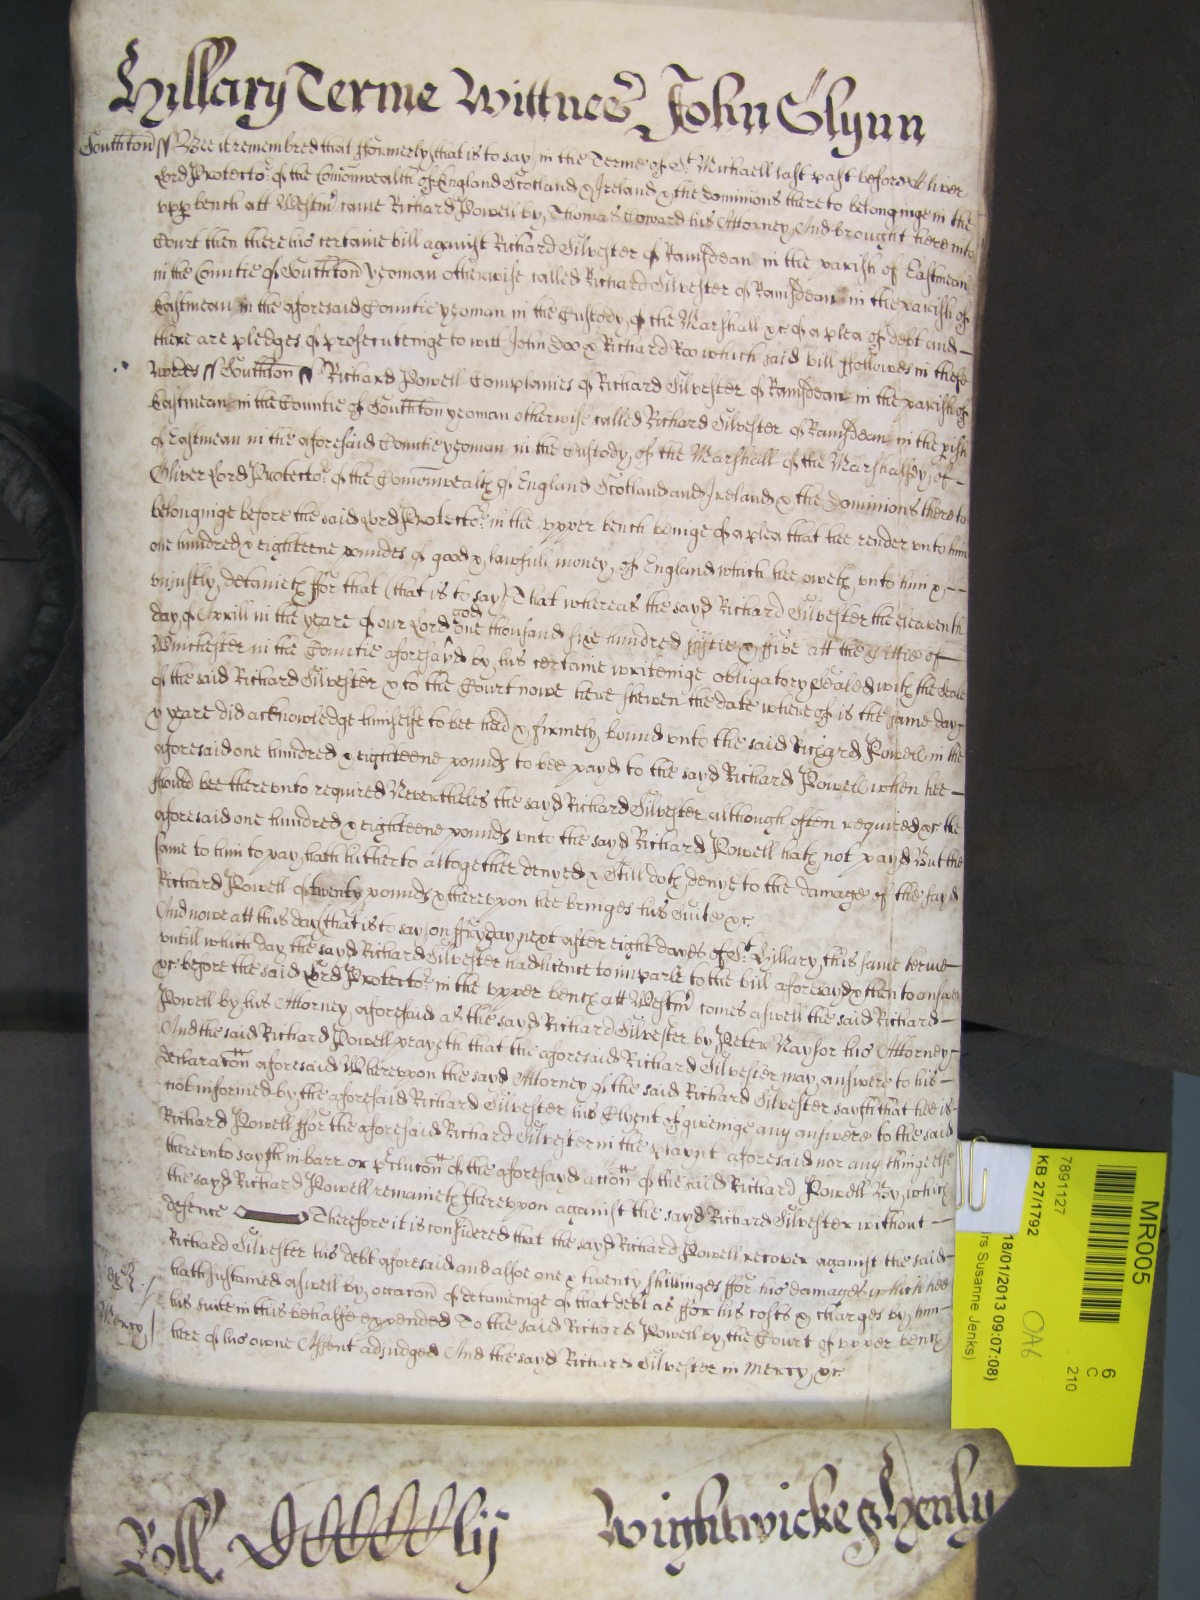 Hillary Terme Wittnes John Glynn
Southton Bee it remembred that fformerly that is to say in the Terme of St Michaell last past before Oliver
Lord Protector of the Comonwealth of England Scotland & Ireland & the Dominions thereto belonginge in the
vpper bench att Westmr came Richard Powell by Thomas Howard his Attorney And brought here into
Court then there his certaine bill against Richard Silvester of Ramsdean in the parish of Eastmean
in the Countie of Southton yeoman otherwise called Richard Silvester of Ramsdean in the parish of
Eastmean in the aforesaid Countie yeoman in the Custody of the Marshall &c of a plea of debt and
there are pledges of prosecuteinge to witt John Doo & Richard Roo which said bill ffollowes in these
words Southton Richard Powell Complaines of Richard Silvester of Ramsdean in the parish of
Eastmean in the Countie of Southton yeoman otherwise called Richard Silvester of Ramsdean in the pish
of Eastmean in the aforesaid Countie yeoman in the Custody of the Marshall of the Marshallsey of
Oliver Lord Protector of the Comonwealth of England Scotland and Ireland & the Dominions thereto
belonginge before the said Lord Protector in the vpper bench beinge of a plea that hee render vnto him
one hundred & eighteene poundes of good & lawfull money of England which hee oweth vnto him &
vnjustly detaineth ffor that (that is to say) That whereas the sayd Richard Silvester the eleaventh
day of Aprill in the yeare of our Lord god one thousand six hundred fiftie & ffive att the Cittie of
Winchester in the Countie aforesayd by his certaine writeinge obligatory Sealed with the Seale
of the said Richard Silvester & to the Court nowe here shewen the date whereof is the same day
& yeare did acknowledge himselfe to bee held & firmely bound vnto the said Richard Powell in the
aforesaid one hundred & eighteene pounds to bee payd to the sayd Richard Powell when hee
should bee therevnto required Neverthelés the sayd Richard Silvester although often required &c the
aforesaid one hundred & eighteene pounds vnto the sayd Richard Powell hath not payd But the
same to him to pay hath hitherto altogether denyed & still doth denye to the damage of the sayd
Richard Powell of twenty pounds & therevpon hee bringes his Suite &c
And nowe att this day that is to say on ffryday next after eight dayes of St Hillary this same terme
vntill which day the sayd Richard Silvester had licence to imparle to the bill aforesayd & then to answer
&c before the said Lord Protector in the vpper bench att Westmr comes aswell the said Richard
Powell by his Attorney aforesaid as the sayd Richard Silvester by Peter Naysor his Attorney
And the said Richard Powell prayeth that the aforesaid Richard Silvester may answere to his
declaration aforesaid Wherevpon the sayd Attorney of the said Richard Silvester sayth that hee is
not informed by the aforesaid Richard Silvester his Clyent of giveinge any answere to the said
Richard Powell ffor the aforesaid Richard Silvester in the playnt aforesaid nor any thinge else
therevnto sayth in barr or pclution of the aforesayd action of the said Richard Powell By which
the sayd Richard Powell remaineth therevpon against the sayd Richard Silvester without
defence Therefore it is considered that the sayd Richard Powell recover against the said
Richard Silvester his debt aforesaid and alsoe one & twenty shillinges ffor his damages which hee
hath sustained aswell by occacon of detaineinge of that debt as ffor his costs & charges by him
his suite in this behalfe expended To the said Richard Powell by the Court of vpper bench
Mercy
here of his owne Assent adjudged And the sayd Richard Silvester in Mercy &c
Roll DCCCCCliij
Wightwicke & Henly
MR005
6
C
210
7891127
KB 27/1792
OA6
18/01/2013 09:07:08)
rs Susanne Jenks)